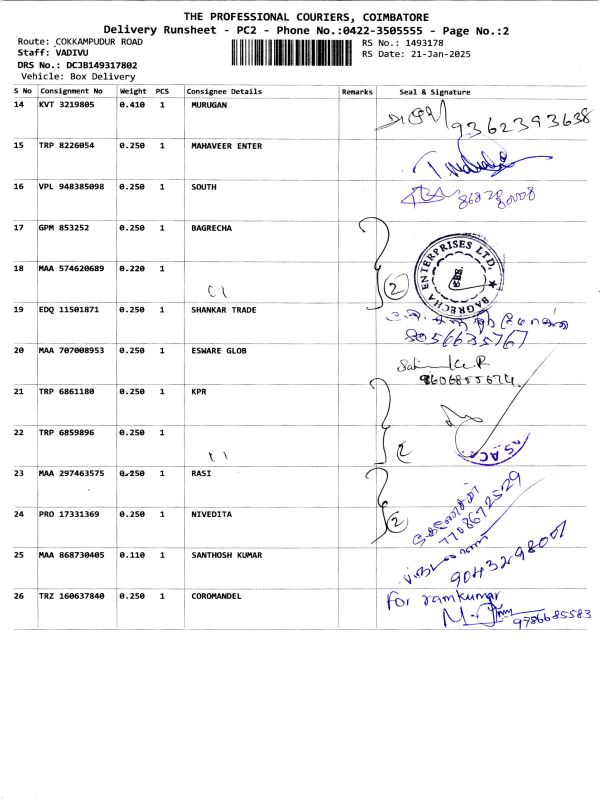 THE PROFESSIONAL COURIERS, COIMBATORE
Delivery Runsheet - PC2 - Phone No.:0422-3505555 - Page No.:2
Route: COKKAMPUDUR ROAD
RS No.: 1493178
Staff: VADIVU
RS Date: 21-Jan-2025
DRS No.: DCJB149317802
Vehicle: Box Delivery
S No Consignment No Weight PCS Consignee Details Remarks Seal & Signature
14 KVT 3219805 0.410 1 MURUGAN
9362393638
15 TRP 8226054 0.250 1 MAHAVEER ENTER
16 VPL 948385098 0.250 1 SOUTH
17 GPM 853252 0.250 1 BAGRECHA
BAGRECHA ENTERPRISES LTD. ★
18 MAA 574620689 0.220 1
2
19 EDQ 11501871 0.250 1 SHANKAR TRADE
8056635767
20 MAA 707008953 0.250 1 ESWARE GLOB
9606855674
21 TRP 6861180 0.250 1 KPR
22 TRP 6859896 0.250 1
2
S.AC
23 MAA 297463575 0.250 1 RASI
24 PRO 17331369 0.250 1 NIVEDITA
2
7708672529
25 MAA 868730405 0.110 1 SANTHOSH KUMAR
9043298007
26 TRZ 160637840 0.250 1 COROMANDEL
For ramkumar
9786685583